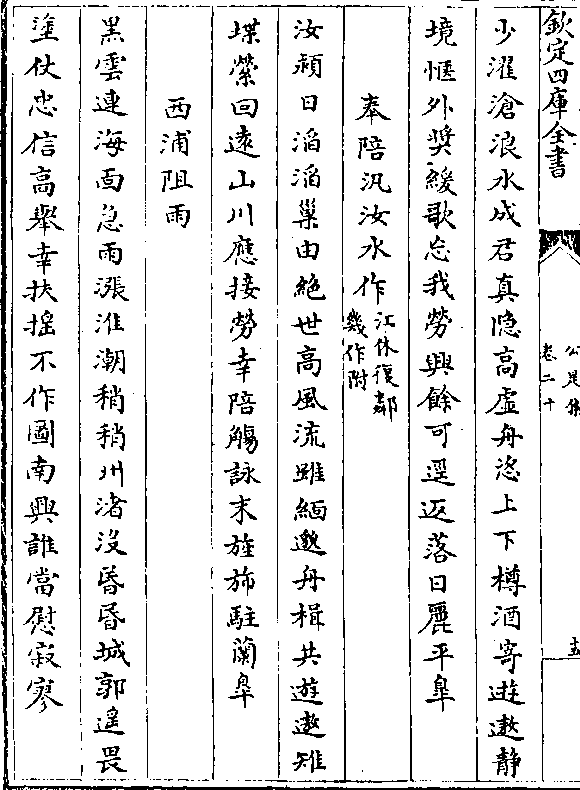 欽定四庫全書
公是集
卷二十
十五
少濯滄浪水成君真隐高虚舟恣上下樽酒寄遊遨静
境惬外奨緩歌忘我勞興餘可遅返落日麗平皐
奉陪汎汝水作江休復鄰幾作附
汝潁日滔滔巢由絶世高風流雖緬邈舟楫共遊遨雉
堞縈回逺山川應接勞幸陪觴詠末旌斾駐蘭皐
西浦阻雨
黒雲連海面急雨漲淮潮稍稍州渚沒昏昏城郭遥畏
塗仗忠信高舉幸扶揺不作圖南興誰當慰寂寥